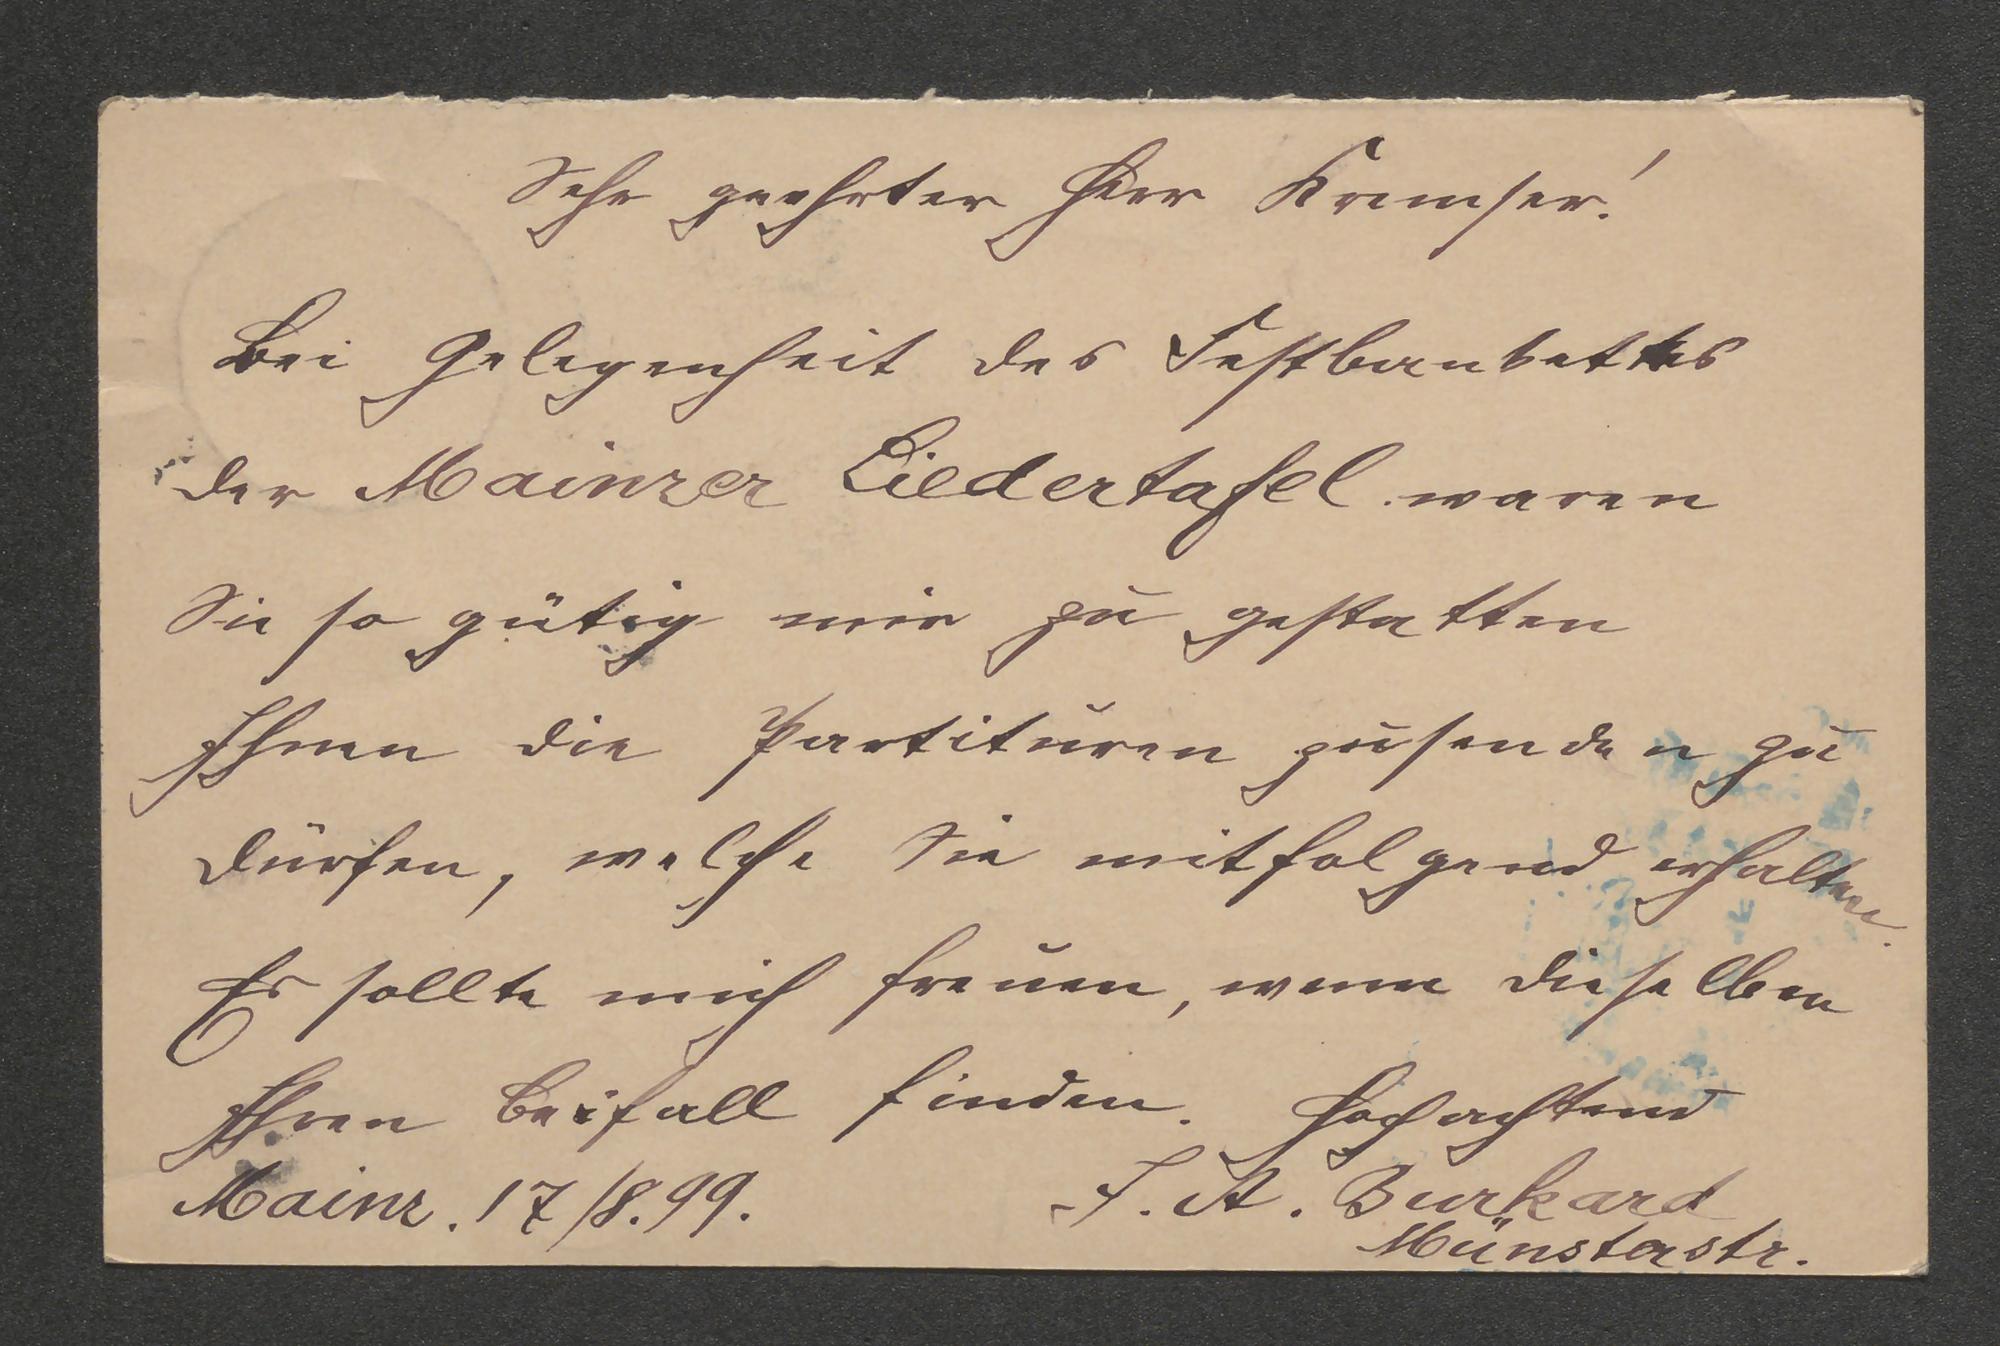 Sehr geehrter Herr Kremser!
Bei Gelegenheit des Festbankettes
der Mainzer Liedertafel waren
Sie so gütig mir zu gestatten
Ihnen die Partituren zusenden zu
dürfen, welche Sie mitfolgend erhalten.
Es sollte mich freuen, wenn dieselben
Ihren Beifall finden. Hochachtend
Mainz. 17/8.99. F. A. Burkard
Münsterstr.